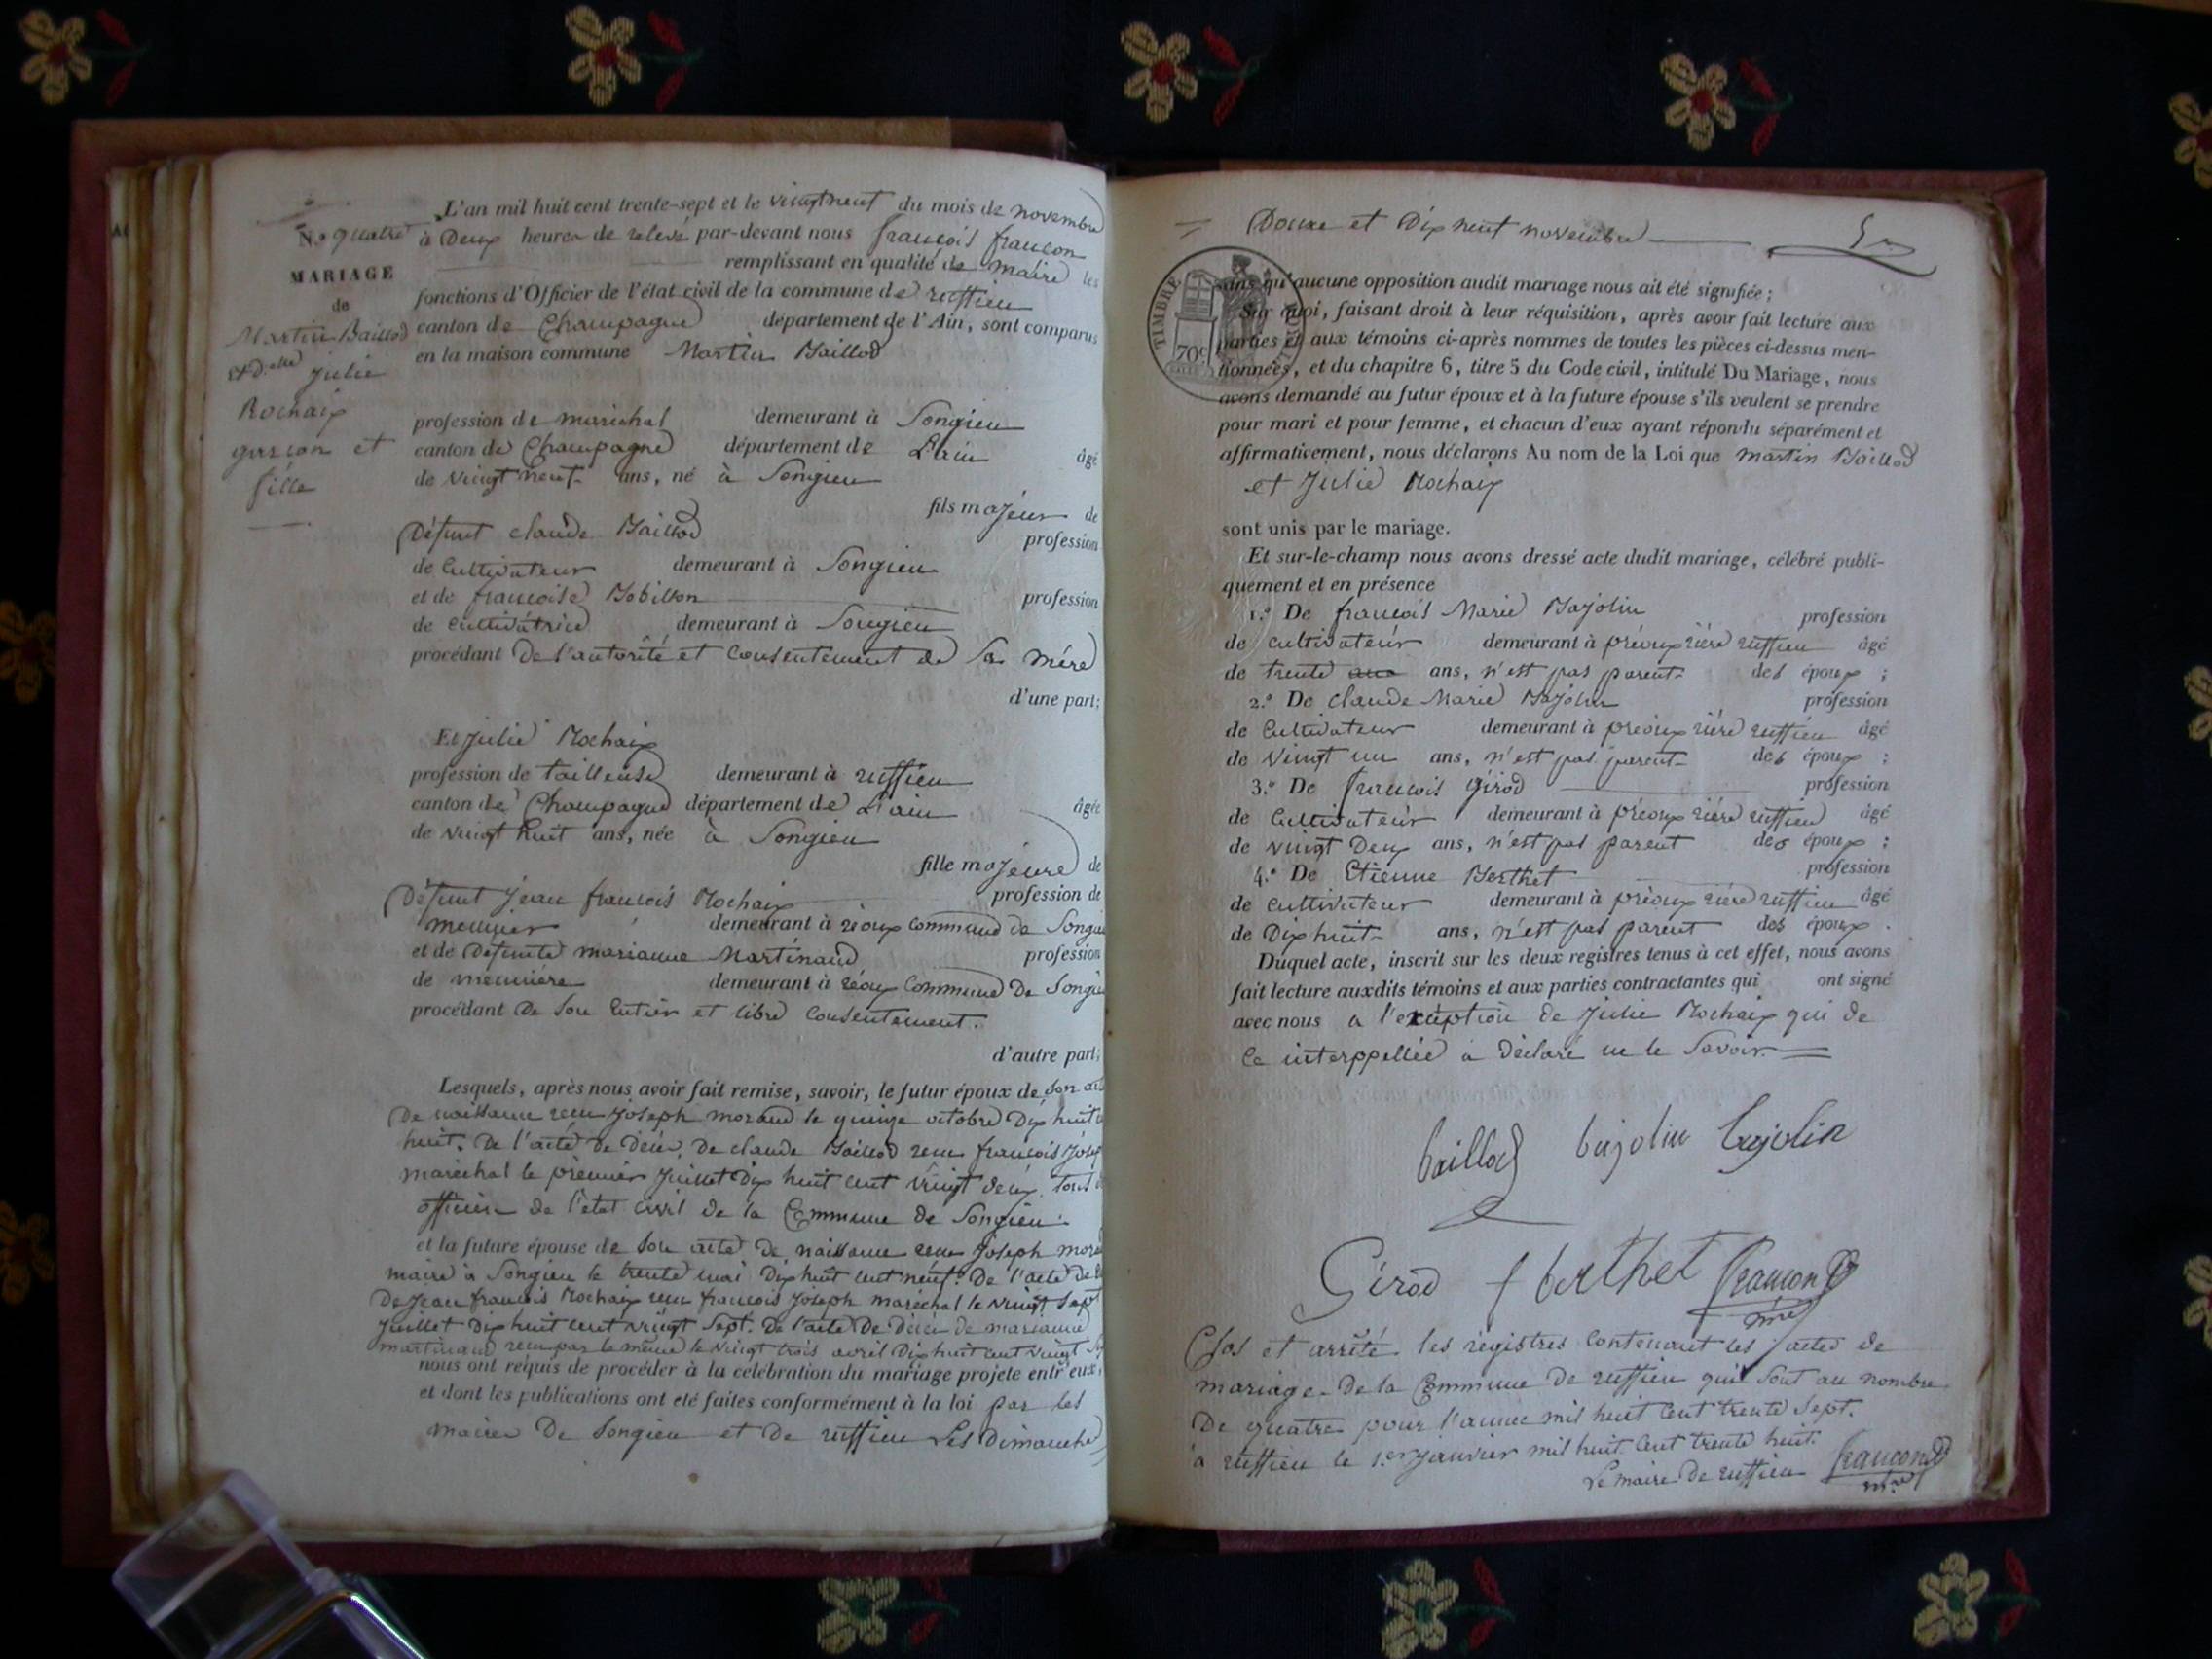 N.o quatre
MARIAGE
de
Martin Baillod
et d.elle julie
Rochaix
garçon et
fille
L'an mil huit cent trente-sept et le vingt neuf du mois de novembre
à Deux heures de relevé par-devant nous françois françon
remplissant en qualité de maire les
fonctions d'Officier de l'état civil de la commune de ruffieu
canton de Champagne département de l'Ain, sont comparus
en la maison commune Martin Baillod
profession de maréchal demeurant à Songieu
canton de Champagne département de L'ain âgé
de vingt neuf ans, né à Songieu
fils majeur de
Défunt claude Baillod profession
de Cultivateur demeurant à Songieu
et de françoise Bobillon profession
de cultivatrice demeurant à Songieu
procédant De l'autorité et consentement de sa mére
d'une part;
Et julie Rochaix
profession de tailleuse demeurant à ruffieu
canton de Champagne département de L'ain âgée
de vingt huit ans, née à Songieu
fille majeure de
Défunt jean françois Rochaix profession de
meunier demeurant à réoux commune de Songieu
et de Défunte marianne Martinaud profession
de meuniére demeurant à réoux Commune De Songieu
procédant De Son Entier et libre Consentement.
d'autre part;
Lesquels, après nous avoir fait remise, savoir, le futur époux de son
De naissance reçu joseph morand le quinze octobre Dix huit
huit. De l'acte de Décès de claude Baillod reçu françois josep
maréchal le premier juillet Dix huit cent vingt deux. tous
officier de l'état civil de la Commune de Songieu.
et la future épouse de Son acte De naissance reçu joseph mora
maire à Songieu le trente mai Dix huit cent neuf. De l'acte de
De jean françois Rochaix reçu françois joseph maréchal le vingt Sept
juillet Dix huit cent vingt Sept. De l'acte De Décès de marianne
martinaud reçu par le même le vingt trois avril Dix huit cent vingt
nous ont requis de procéder à la célébration du mariage projeté entr'eux,
et dont les publications ont été faites conformément à la loi par les
maires De Songieu et De ruffieu Les Dimanche
Douze et Dix neuf novembre
sans qu'aucune opposition audit mariage nous ait été signifiée;
Sur quoi, faisant droit à leur réquisition, après avoir fait lecture aux
parties et aux témoins ci-après nommés de toutes les pièces ci-dessus men-
tionnées, et du chapitre 6, titre 5 du Code civil, intitulé Du Mariage, nous
avons demandé au futur époux et à la future épouse s'ils veulent se prendre
pour mari et pour femme, et chacun d'eux ayant répondu séparément et
affirmativement, nous déclarons Au nom de la Loi que martin Baillod
et Julie Rochaix
sont unis par le mariage.
Et sur-le-champ nous avons dressé acte dudit mariage, célébré publi-
quement et en présence
1.o De françois Marie Bajolin profession
de cultivateur demeurant à préoux riére ruffieu âgé
de trente ans, n'est pas parent des époux;
2.o De claude Marie Bajolin profession
de Cultivateur demeurant à préoux riére ruffieu âgé
de vingt un ans, n'est pas parent des époux;
3.o De françois girod profession
de Cultivateur demeurant à préoux riére ruffieu âgé
de vingt Deux ans, n'est pas parent des époux;
4.o De Etienne Berthet profession
de cultivateur demeurant à préoux riére ruffieu âgé
de Dix huit ans, n'est pas parent des époux.
Duquel acte, inscrit sur les deux registres tenus à cet effet, nous avons
fait lecture auxdits témoins et aux parties contractantes qui ont signé
avec nous a l'exception de Julie Rochaix qui de
ce interppellée a Déclaré ne le Savoir.
baillod bajolin bajolin
Girod f berthet françon
mre
Clos et arrêté les registres contenant les actes de
mariage de la Commune de ruffieu qui Sont au nombre
De quatre pour l'année mil huit cent trente Sept.
à ruffieu le 1.er janvier mil huit cent trente huit.
Le maire De ruffieu françon
mre
TIMBRE
70c